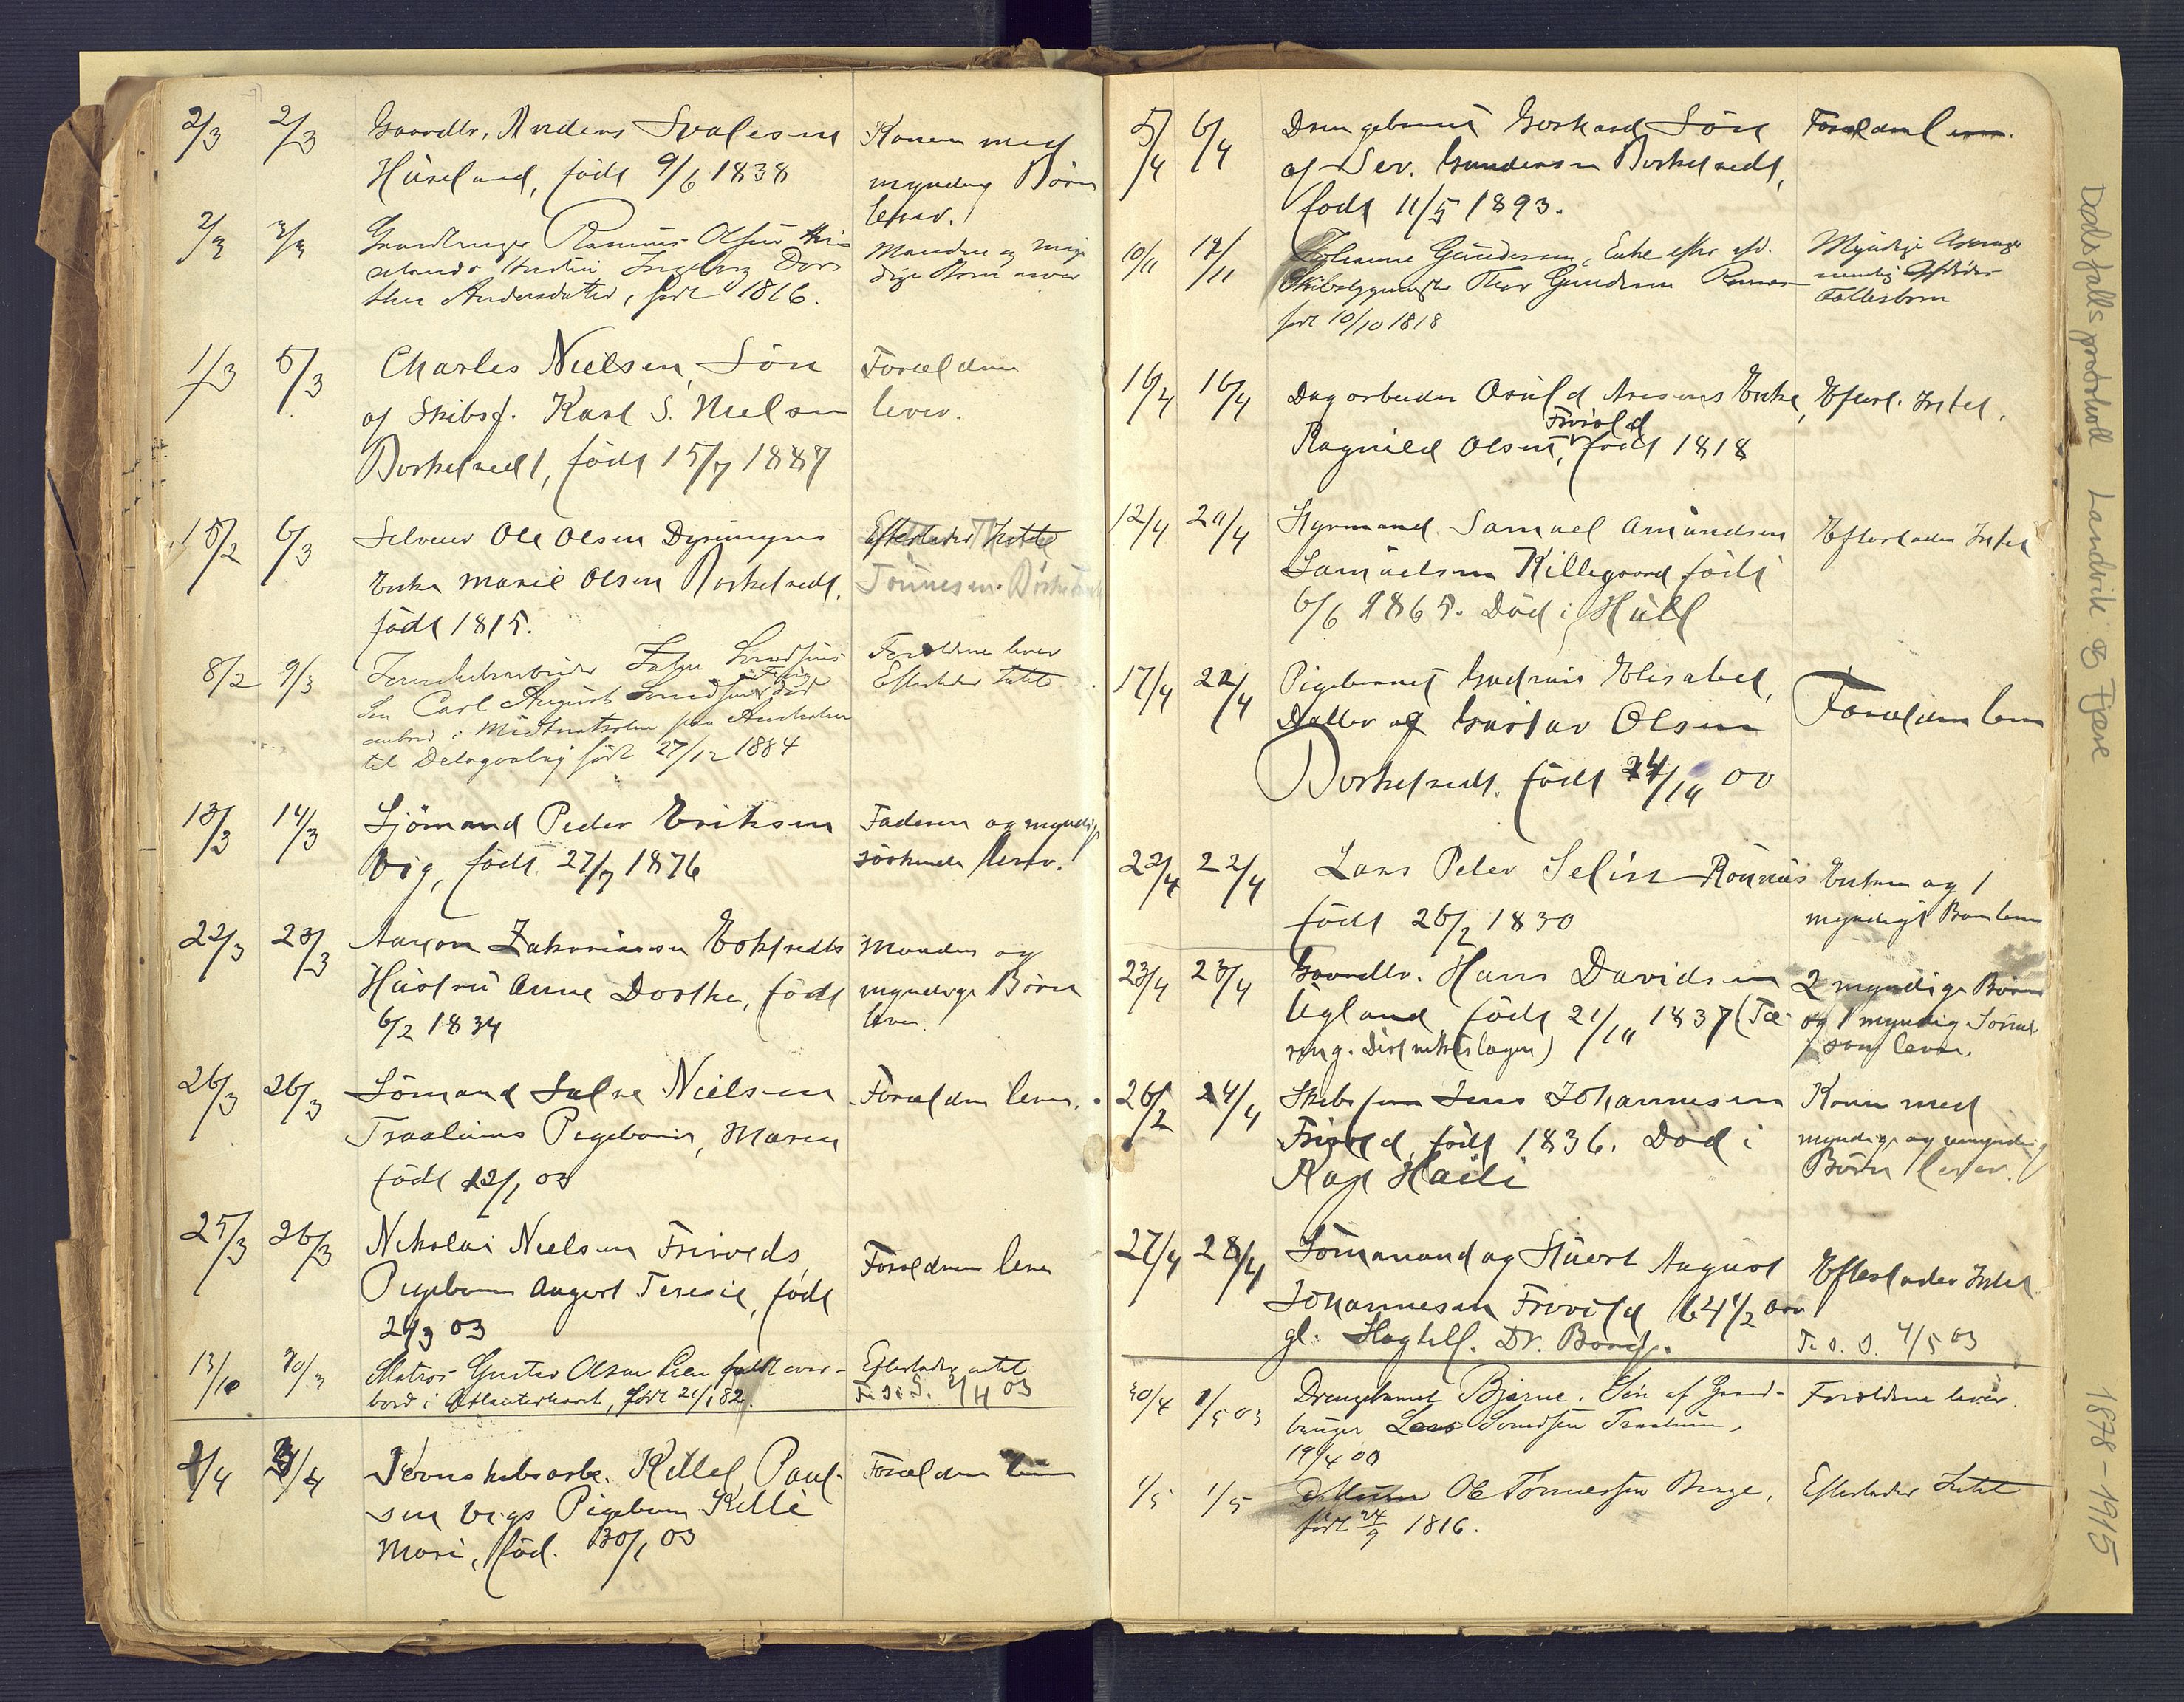 2/3 2/3 Gaardbr. Anders Svalesen Konen med
Hüseland, född 9/6 1838 myndig Börn
lever.
2/3 3/3 Gaardbruger Rasmus Olsen Manden og myn
selands Hustru Ingeborg Dor dige Børn lever
thea Andersdatter, født 1816.
1/3 5/3 Charles Nielsen, Sön Forældrene
af Skibsf. Karl S. Nielsen lever.
Dorkelsedt, född 15/7 1887
15/2 6/3 Selveier Ole Olsen Dyringens Efterlader Intet
Enke Marie Olsen Dorkelsedt,
född 1815. Tönnesen
8/2 9/3 John Svendsens Forældrene lever
Søn Carl August Svendsen Efterlader Intet
ombord i paa Australien
til Delagoabay født 27/12 1884
13/3 14/3 Sjömand Peder Eriksen Faderen og myndige
Vig, född. 27/7 1876 söskende lever.
22/3 23/3 Aanon Zakariassen Eskesedts Manden og
Hüstrü Anne Dorthe, född myndige Börn
6/2 1834 lever.
26/3 26/3 Sömand Salve Nielsen Forældrene lever.
Traalums Pigebarn, Maren
född 12/1 03
25/3 26/3 Nikolai Nielsen Frivolds, Forældrene lever
Pigebarn August Teresie, född
24/3 03
13/10 30/3 Matros Gustav Olsen Lien faldt over- Efterlader intet
bord i Atlanterhavet, født 21/1 82. T. S. S. 2/4 03
2/4 3/4 Jernskibsarb. Kittel Paul- Forældrene lever
sen Vigs Pigebarn Kitti
Mari, föd. 30/1 03
5/4 6/4 Drengebarnet Gerhard Sön Forældrene lever.
af Sev. Gundersen Dorkelsedt,
född 11/5 1893.
10/11 12/11 Johanne Gundersen, Enke efter afd. Myndige
Skibsbygmester Thor Gundersen Rønnes
født 10/10 1818 Fællesbørn
16/4 16/4 Dagarbeider Osuld Aresens Enke, Efterl. Intet.
Frivold
Ragnild Olsen, född 1818
12/4 20/4 Styrmand Samuel Amundsen Efterlader Intet
Samuelsen Killegaard född
6/6 1865. Död i Hüll
17/4 22/4 Pigebarnet Gudrun Elisabet, Forældrene lever
Datter af Gustav Olsen
Dorkelsedt. född 24/10 00
22/4 22/4 Lars Peter Selin Rönnes Enken og 1
född 26/2 1830 myndigt Barn lever
23/4 23/4 Gaardbr. Hans Davidsen 2 myndige Börn
Ugland född 21/10 1837 (Tæ- og 1 myndig Sönne-
ring. Distriktslægen) sön lever.
26/2 24/4 Skibsfører Jens Johannesen Konen med
Frivold, född 1836. Död i myndige og umyndig
Kap Haiti Börn lever.
27/4 28/4 Sömmand og Stuert August Efterlader Intet
Johannesen Frivold 64 1/2 aar
gl. Dr. T. S. S. 4/5 03
30/4 1/5 03 Drengebarnet Bjarne, Søn af Gaard- Forældrene lever.
bruger Lars Svendsen Traalum,
19/4 00
1/5 1/5 Ole Tønnessen Berge, Efterlader Intet
født 24/9 1816.
Dødsfallsprotokoll Landvik og Fjære 1878-1915